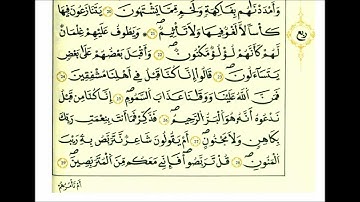 وَأَمْدَدْنَٰهُم بِفَٰكِهَةٍ وَلَحْمٍ مِّمَّا يَشْتَهُونَ ۝٢٢ يَتَنَٰزَعُونَ فِيهَا
كَأْسًا لَّا لَغْوٌ فِيهَا وَلَا تَأْثِيمٌ ۝٢٣ وَيَطُوفُ عَلَيْهِمْ غِلْمَانٌ
لَّهُمْ كَأَنَّهُمْ لُؤْلُؤٌ مَّكْنُونٌ ۝٢٤ وَأَقْبَلَ بَعْضُهُمْ عَلَىٰ بَعْضٍ
يَتَسَآءَلُونَ ۝٢٥ قَالُوٓا۟ إِنَّا كُنَّا قَبْلُ فِىٓ أَهْلِنَا مُشْفِقِينَ ۝٢٦
فَمَنَّ ٱللَّهُ عَلَيْنَا وَوَقَىٰنَا عَذَابَ ٱلسَّمُومِ ۝٢٧ إِنَّا كُنَّا مِن قَبْلُ
نَدْعُوهُ إِنَّهُۥ هُوَ ٱلْبَرُّ ٱلرَّحِيمُ ۝٢٨ فَذَكِّرْ فَمَآ أَنتَ بِنِعْمَتِ رَبِّكَ
بِكَاهِنٍ وَلَا مَجْنُونٍ ۝٢٩ أَمْ يَقُولُونَ شَاعِرٌ نَّتَرَبَّصُ بِهِۦ رَيْبَ
ٱلْمَنُونِ ۝٣٠ قُلْ تَرَبَّصُوا۟ فَإِنِّى مَعَكُم مِّنَ ٱلْمُتَرَبِّصِينَ ۝٣١
أَمْ تَأْمُرُهُمْ